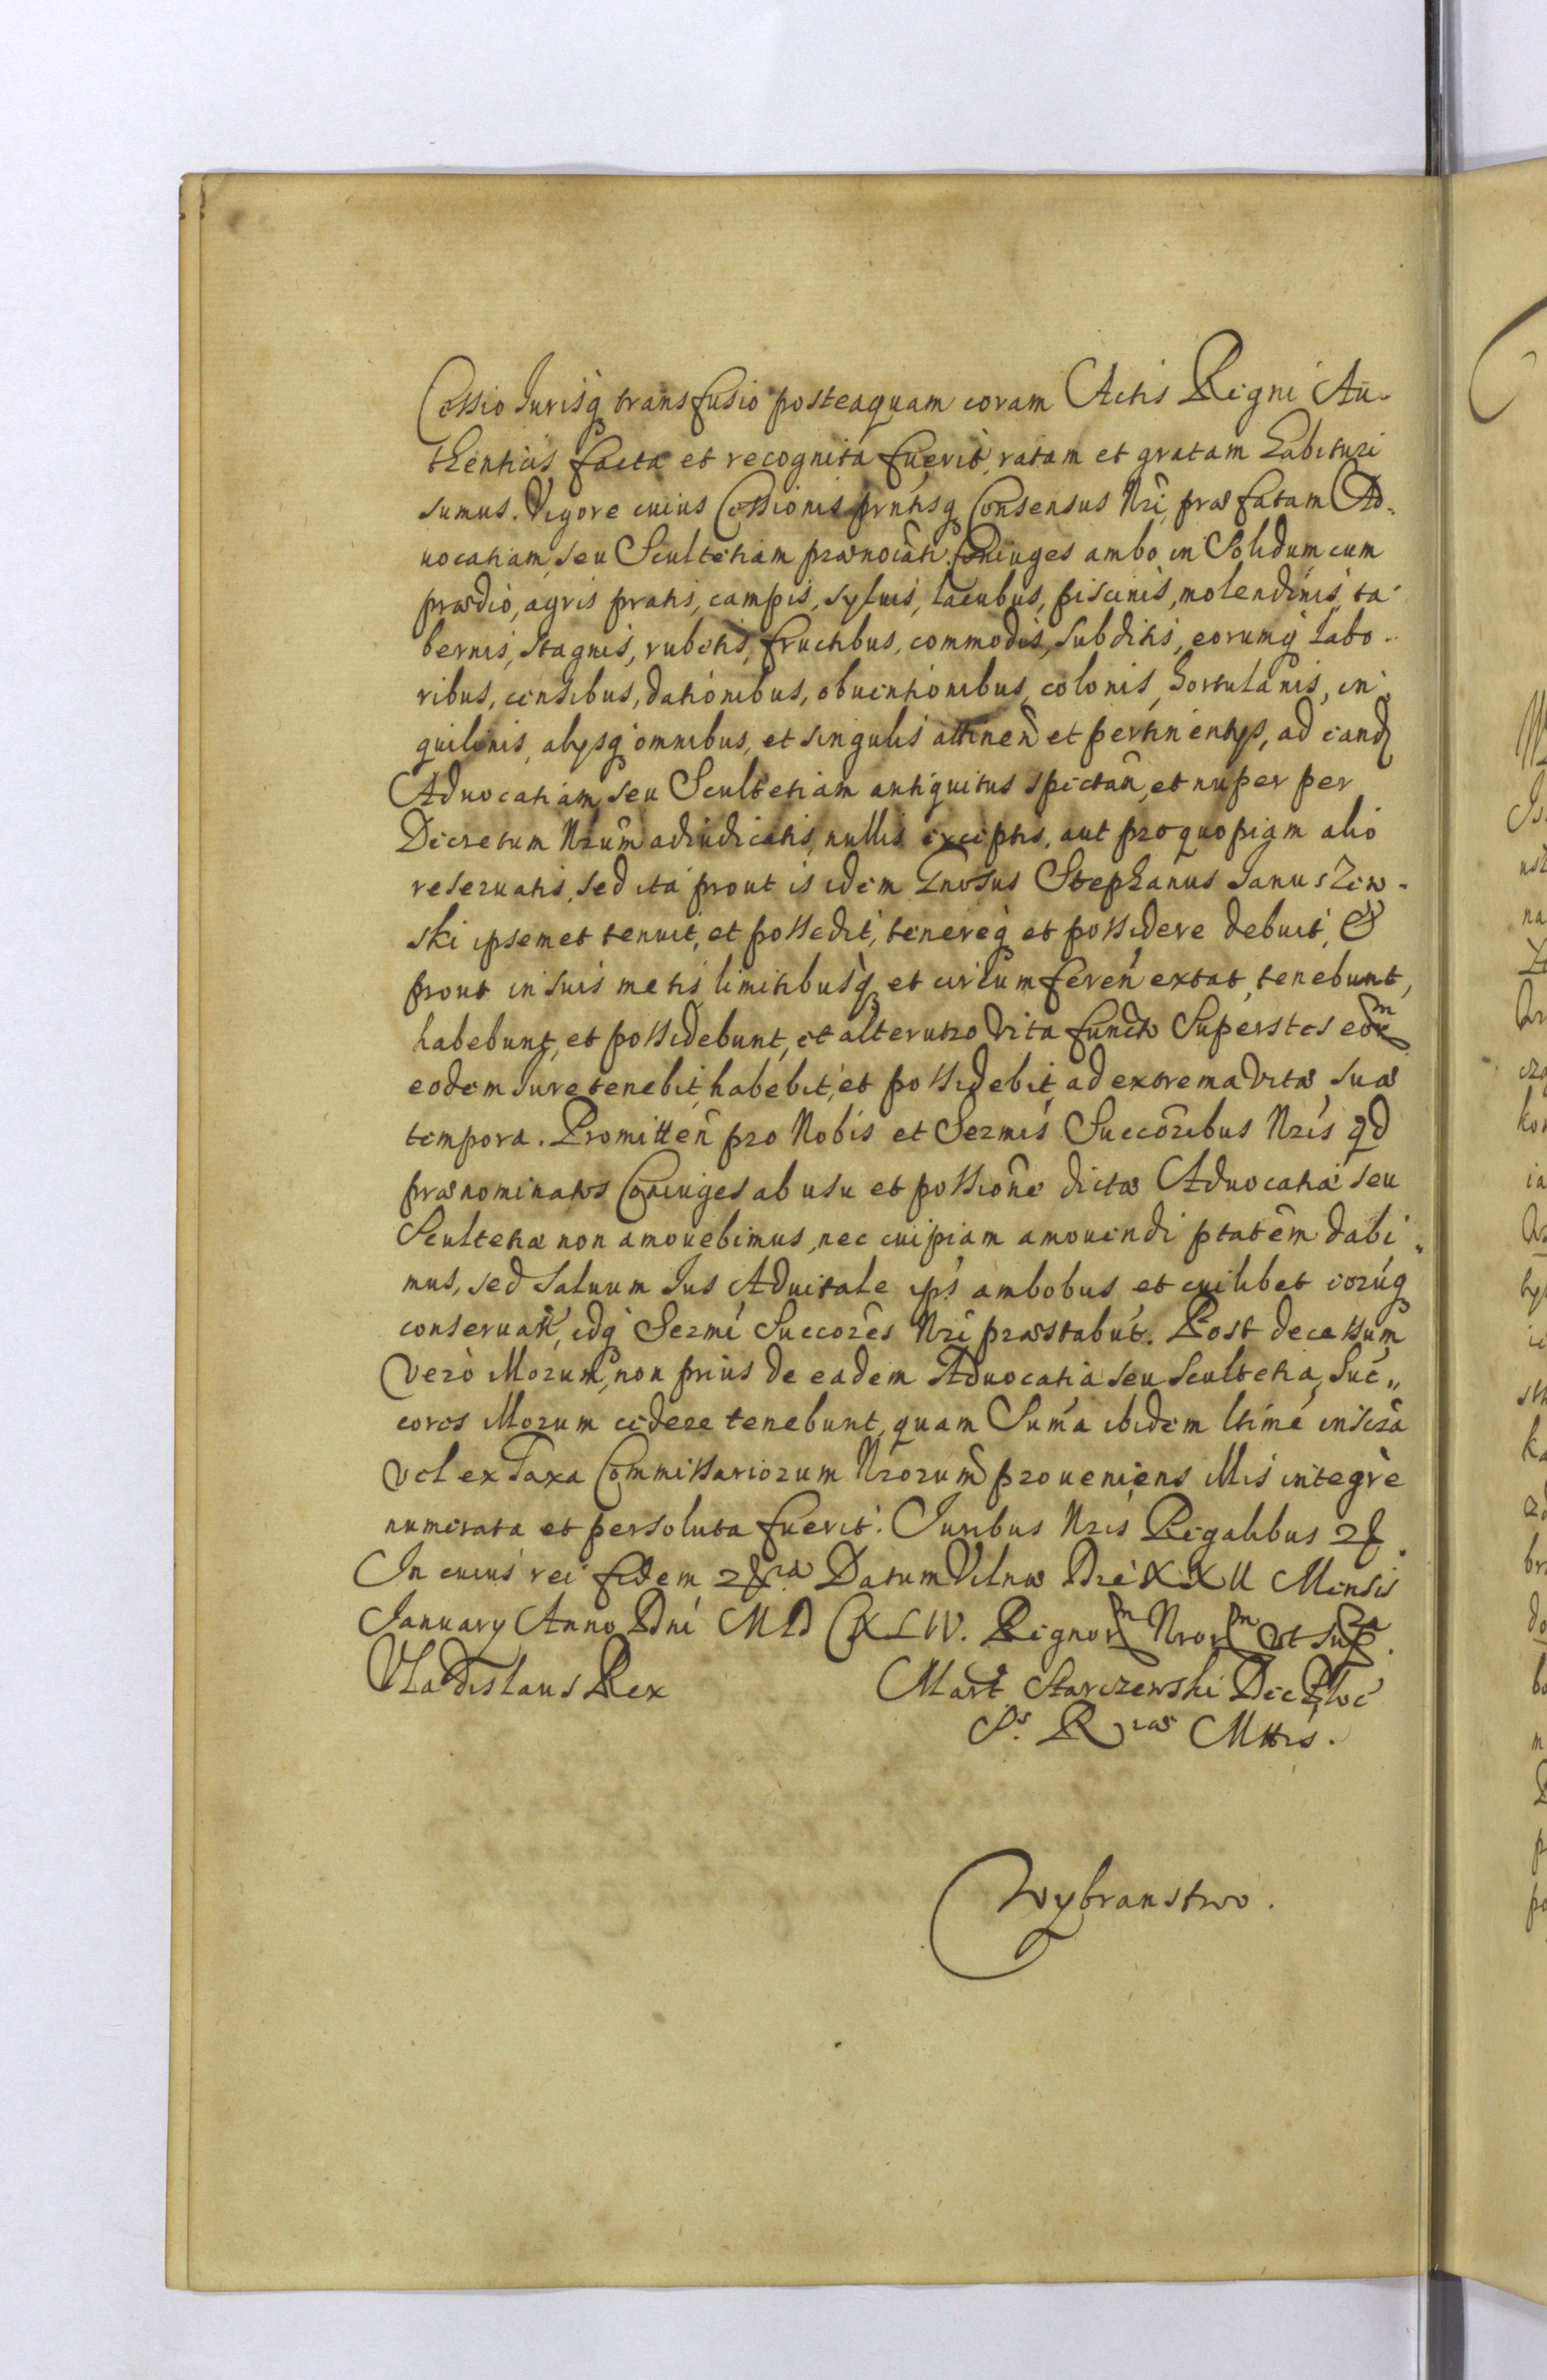 Cessio Jurisq̃ transfusio posteaquam coram Actis Regni Au-
thenticis facta et recognita fuerit, ratam et gratam habituri
sumus. Vigore cuius Cessionis prntisq̃ Consensus Nri, præfatam Ad-
uocatiam, seu Scultetiam prænoĩati Coniuges ambo in Solidum cum
prædio, agris pratis, campis, syluis, lacubus, piscinis, molendinis, ta-
bernis, stagnis, rubetis, fructibus, commodis, subditis, eorumq̃ labo-
ribus, censibus, dationibus, obuentionibus, colonis, hortulanis, in-
quilinis, alijsq̃ omnibus, et singulis attineñ et pertinentijs, ad eand̃
Aduocatiam, seu Scultetiam antiquitus spectañ, et nuper per
Decretum Nrum̃ adiudicatis, nullis exceptis, aut pro quopiam alio
reseruatis, sed ita prout is idem Gnosus Stephanus Januszew-
ski ipsemet tenuit, et possedit, tenereq̃ et possidere debuit, &
prout in suis metis limitibusq̃, et circumfereñ extat, tenebunt,
habebunt, et possidebunt, et alterutro vita functo Superstes eorᵐ
eodem Jure tenebit, habebit, et possidebit, ad extrema vitæ suæ
tempora. Promitteñ pro Nobis et Sermis Succorĩbus Nris qd
prænominatos Coniuges ab usu et possione dictæ Aduocatiæ seu
Scultetiæ non amouebimus, nec cuipiam amouendi ptatem̃ dabi-
mus, sed saluum Jus Aduitale ipˢ ambobus et cuilibet eorúq
conseruab̃, idq̃ Sermi Succores̃ Nri præstabút. Post decessum
vero Illorum, non prius de eadem Aduocatia seu scultetia, Suc̃-
cores Illorum cedere tenebunt, quam Suma ibidem ltime inscra
vel ex Taxa Commissariorum Nrorum̃ proueniens Illis integrè
numerata et persoluta fuerit. Juribus Nris Regalibus &
In cuius rei fidem &ra Datum Vilnæ Die XXII Mensis
January Anno Dni MDCXLIV. Regnorᵐ Nrorᵐ vt supra.
Vladislaus Rex Mart Starczewski
Sᵃ Rⁱᵃᵉ Mttis.
Wybranstwo.